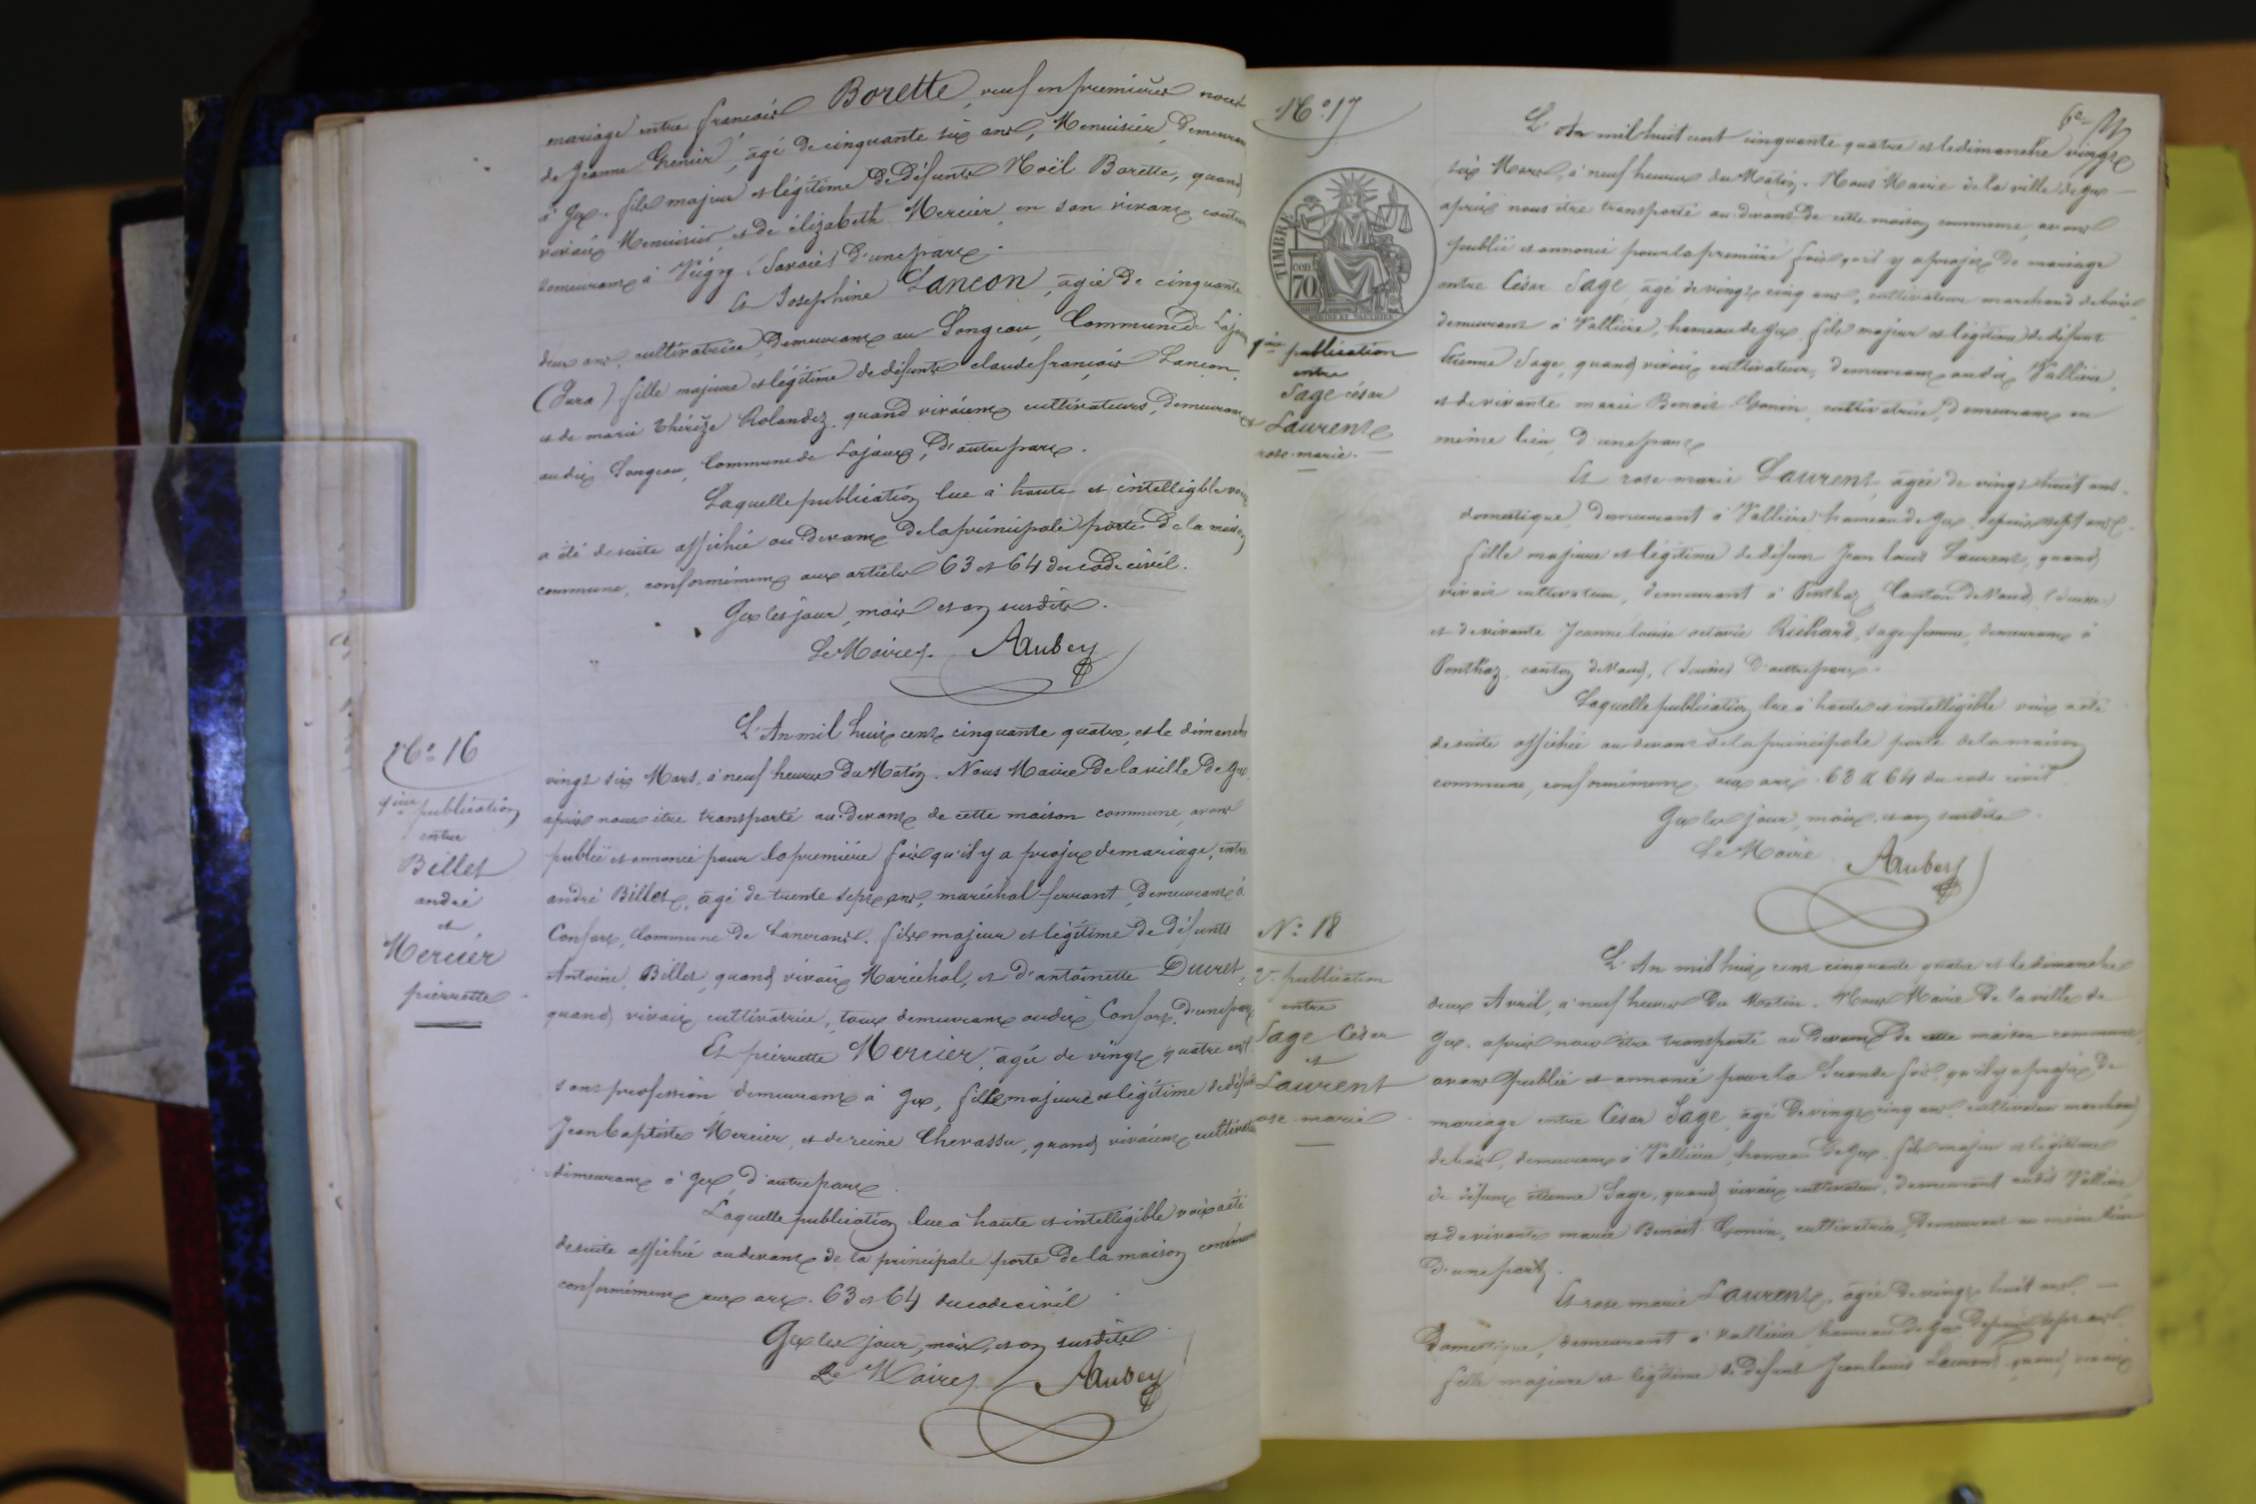 mariage entre françois Borette, veuf en premières noces
de Jeanne Grenier, âgé de cinquante six ans, Menuisier, demeurant
à Gex. fils majeur et légitime de défunts Noël Borette, quand
vivait Menuisier, et de élizabeth Mercier, en son vivant
demeurant à Veigy (Savoie) d'une part.
Et Josephine Lancon, âgée de cinquante
deux ans, cultivatrice, demeurant au Songeau, Commune de Lajoux
(Jura) fille majeure et légitime de défunts claude françois Lancon,
et de marie thérèze Rolandez, quand vivaient cultivateurs, demeurant
audit Songeau, Commune de Lajoux, d'autre part.
Laquelle publication lue à haute et intelligible voix
a été de suite affichée au devant de la principale porte de la maison
commune, conformément aux articles 63 et 64 du code civil.
Gex les jour, mois et an susdits.
Le Maire. AAubey
N° 16
1ière publication
entre
Billet
andré
et
Mercier
pierrette
L'An mil huit cent cinquante quatre, et le dimanche
vingt six Mars, à neuf heures du Matin. Nous Maire de la ville de Gex
après nous être transporté au devant de cette maison commune, avons
publié et annoncé pour la première fois qu'il y a projet de mariage, entre
andré Billet, âgé de trente sept ans, maréchal ferrant, demeurant à
Confort, Commune de Lancrans. fils majeur et légitime de défunts
Antoine Billet, quand vivait Maréchal, et d'antoinette Ducret,
quand vivait cultivatrice, tous demeurant audit Confort, d'une part
Et pierrette Mercier, âgée de vingt quatre ans
sans profession demeurant à Gex, fille majeure et légitime de défunts
Jean baptiste Mercier, et de reine Chevassu, quand vivaient cultivateurs
demeurant à Gex, d'autre part.
Laquelle publication lue à haute et intelligible voix a été
de suite affichée au devant de la principale porte de la maison commune
conformément aux art. 63 et 64 du code civil
Gex les jour, mois, et an susdits.
Le Maire AAubey
N° 17
TIMBRE
70
1ière publication
entre
Sage césar
et
Laurent
rose-marie.
L'An mil huit cent cinquante quatre et le dimanche vingt
six Mars, à neuf heures du Matin. Nous Maire de la ville de Gex
après nous être transporté au devant de cette maison commune, avons
publié et annoncé pour la première fois qu'il y a projet de mariage
entre César Sage, âgé de vingt cinq ans, cultivateur marchand de bois,
demeurant à Vallière, hameau de Gex. fils majeur et légitime de défunt
Etienne Sage, quand vivait cultivateur, demeurant audit Vallière,
et de vivante marie Benoit Gonin, cultivatrice, demeurant au
même lieu, d'une part
Et rose marie Laurent, âgée de vingt huit ans.
domestique, demeurant à Vallière hameau de Gex, depuis sept ans.
fille majeure et légitime de défunt Jean louis Laurent, quand
vivait cultivateur, demeurant à Penthaz, Canton de Vaud, (Suisse)
et de vivante Jeanne louise octavie Richard, sage femme, demeurant à
Penthaz, canton de Vaud, (Suisse) d'autre part.
Laquelle publication lue à haute et intelligible voix a été
de suite affichée au devant de la principale porte de la maison
commune, conformément aux art. 63 & 64 du code civil
Gex les jour, mois, et an susdits.
Le Maire AAubey
N° 18
2e publication
entre
Sage César
et
Laurent
rose marie
L'An mil huit cent cinquante quatre et le dimanche
deux Avril, à neuf heures du Matin. Nous Maire de la ville de
Gex. après nous être transporté au devant de cette maison commune,
avons publié et annoncé pour la seconde fois qu'il y a projet de
mariage entre César Sage, âgé de vingt cinq ans, cultivateur marchand
de bois, demeurant à Vallière, hameau de Gex. fils majeur et légitime
de défunt étienne Sage, quand vivait cultivateur, demeurant audit Vallière
et de vivante marie Benoit Gonin, cultivatrice, demeurant au même lieu
d'une part.
Et rose marie Laurent, âgée de vingt huit ans,
Domestique, demeurant à Vallière hameau de Gex depuis sept ans,
fille majeure et légitime de défunt Jean louis Laurent, quand vivait